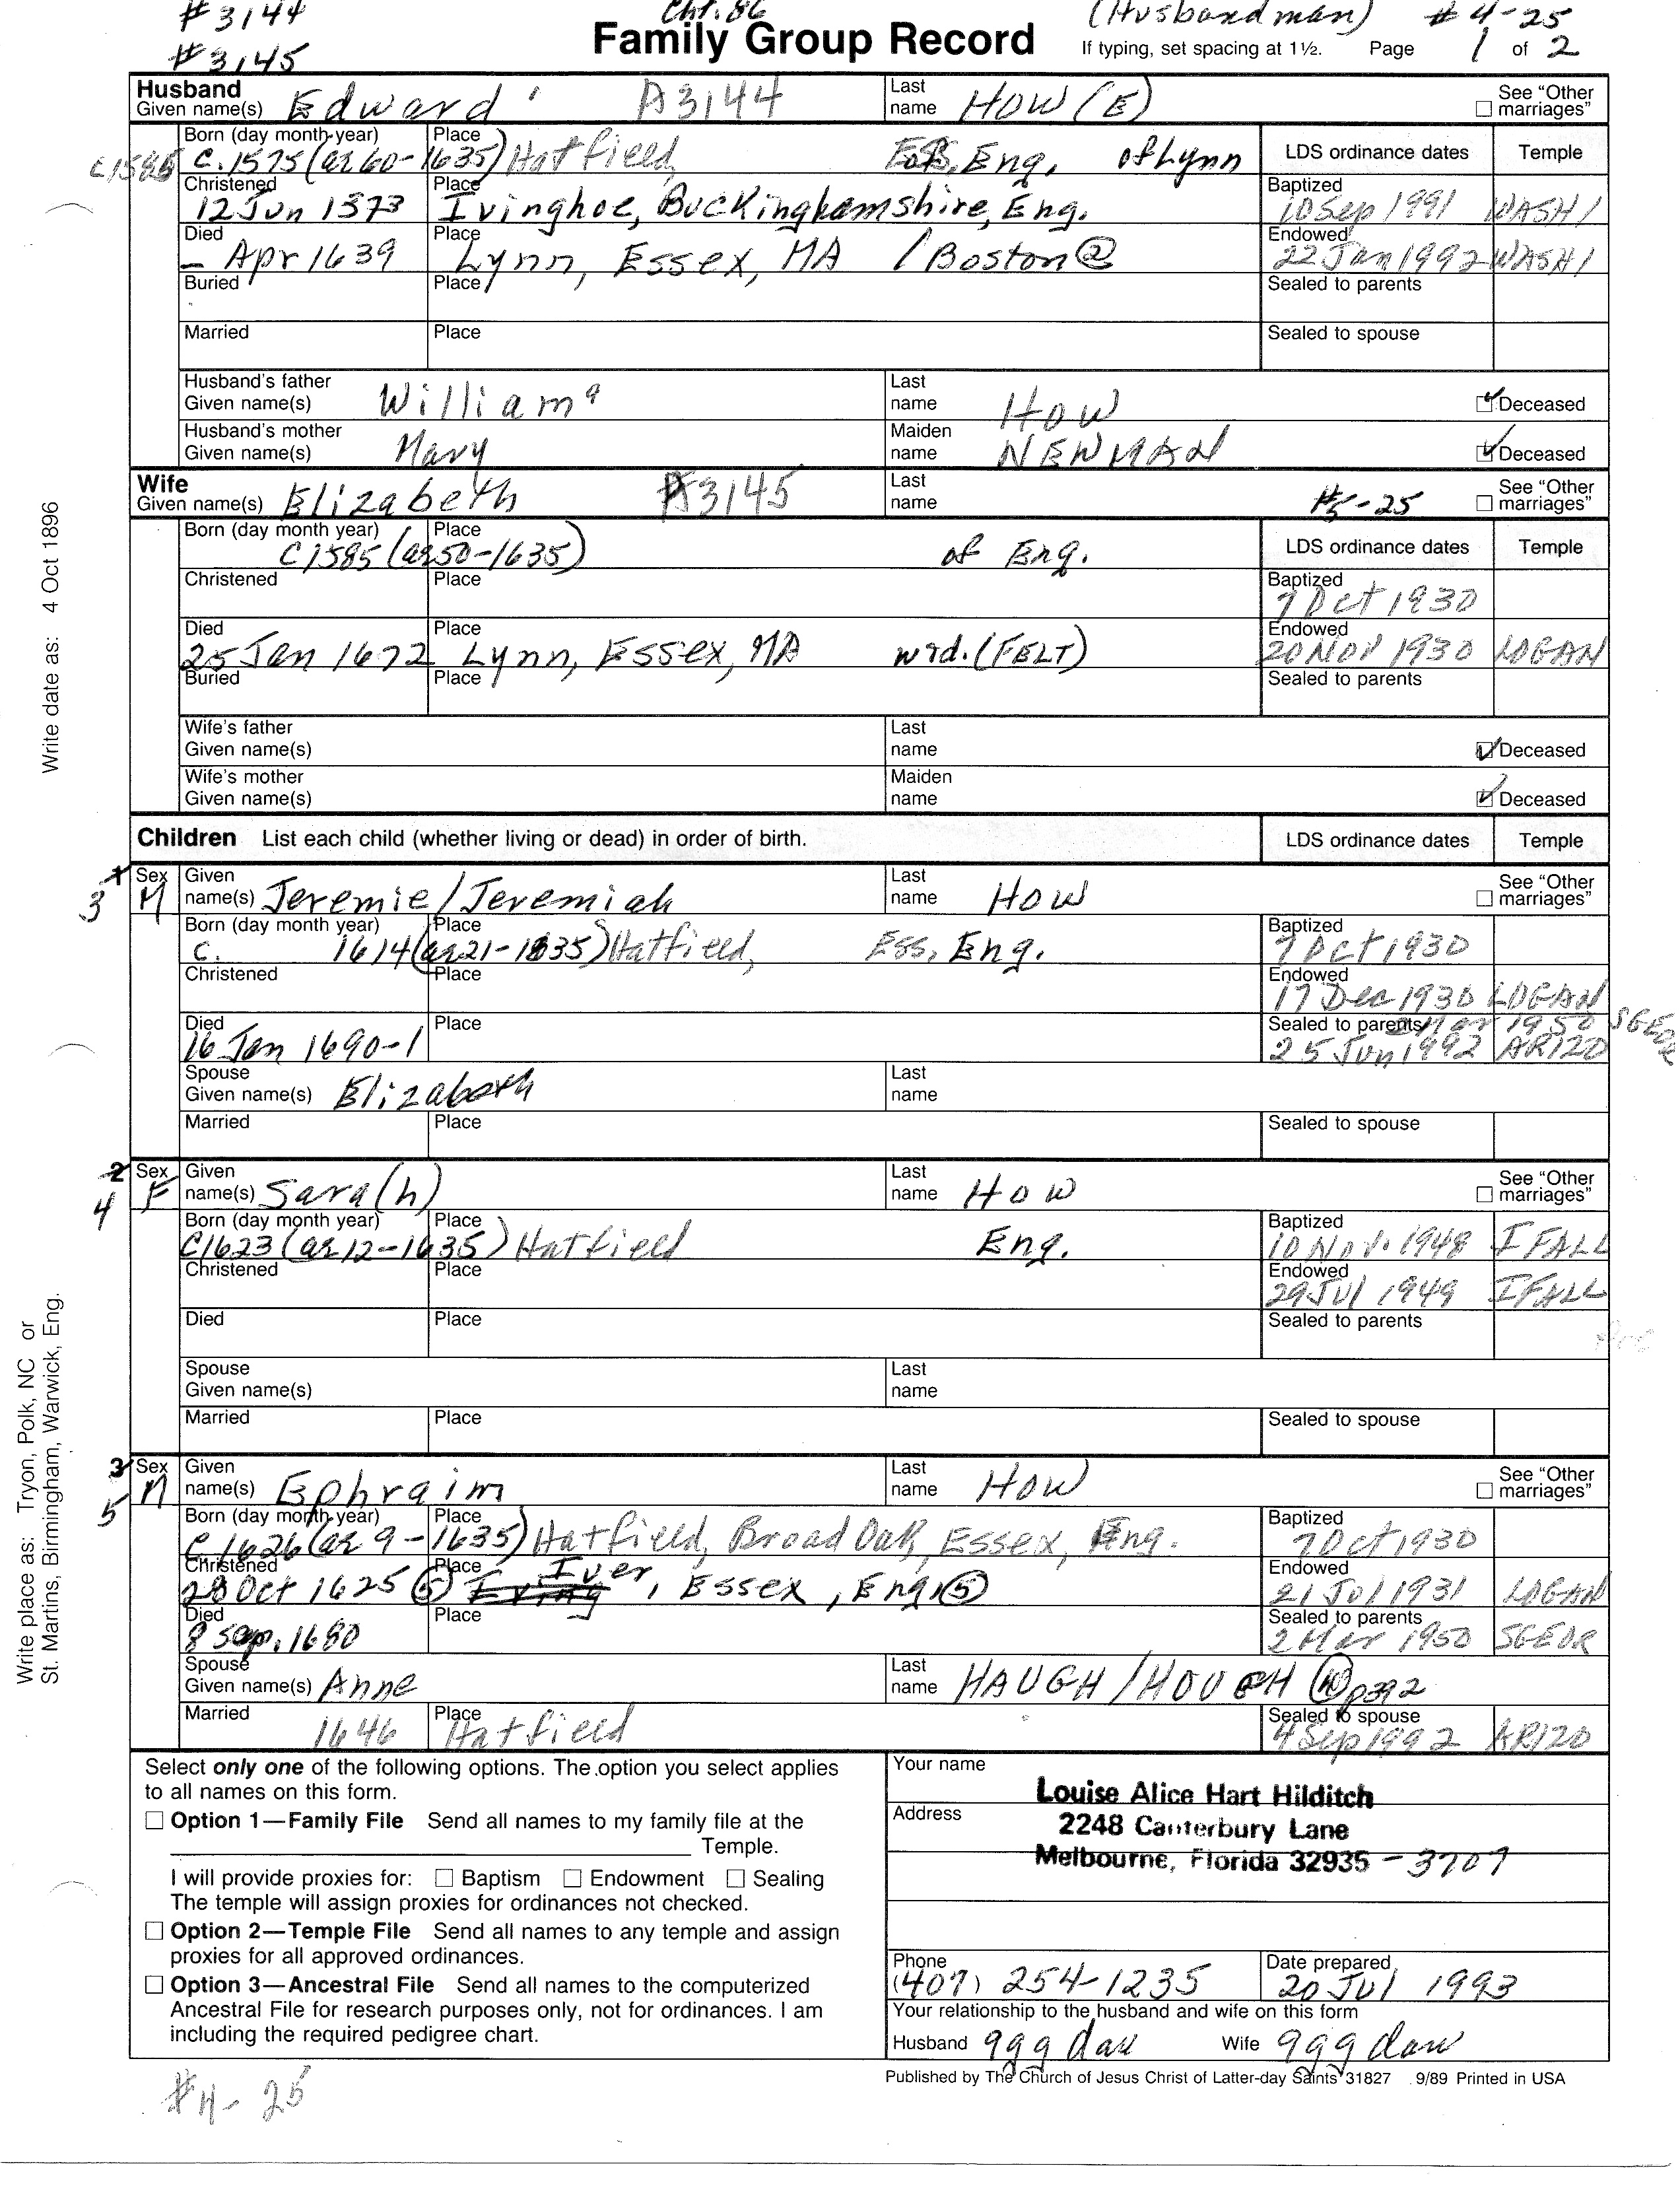 #3144 Cht. 86 (Husbandman) #4-25
#3145 Family Group Record If typing, set spacing at 1½. Page 1 of 2
Husband
Given name(s) Edward A3144 Last name HOW(E) See "Other marriages"
Born (day month year) Place
C1585 c.1575 (ae 60-1635) Hatfield, Ess, Eng. of Lynn LDS ordinance dates Temple
Christened Place Baptized
12 Jun 1573 Ivinghoe, Buckinghamshire, Eng. 10 Sep 1991 WASHI
Died Place Endowed
– Apr 1639 Lynn, Essex, MA / Boston@ 22 Jan 1992 WASHI
Buried Place Sealed to parents
Married Place Sealed to spouse
Husband's father
Given name(s) William Last name How Deceased
Husband's mother
Given name(s) Mary Maiden name NEWMAN Deceased
Wife
Given name(s) Elizabeth A3145 Last name #5-25 See "Other marriages"
Born (day month year) Place
C1585 (ae 50-1635) of Eng. LDS ordinance dates Temple
Christened Place Baptized
7 Oct 1930
Died Place Endowed
25 Jan 1672 Lynn, Essex, MA wid. (FELT) 20 Nov 1930 LOGAN
Buried Place Sealed to parents
Wife's father
Given name(s) Last name Deceased
Wife's mother
Given name(s) Maiden name Deceased
Children List each child (whether living or dead) in order of birth. LDS ordinance dates Temple
1 Sex Given Last See "Other
3 M name(s) Jeremie/Jeremiah name How marriages"
Born (day month year) Place Baptized
c. 1614 (ae 21-1635) Hatfield, Ess, Eng. 7 Oct 1930
Christened Place Endowed
17 Dec 1930 LOGAN
Died Place Sealed to parents Mar 1950 SGEOR
16 Jan 1690-1 25 Jun 1992 ARIZO
Spouse
Given name(s) Elizabeth Last name
Married Place Sealed to spouse
2 Sex Given Last See "Other
4 F name(s) Sara(h) name How marriages"
Born (day month year) Place Baptized
C1623 (ae 12-1635) Hatfield Eng. 10 Nov. 1948 IFALL
Christened Place Endowed
29 Jul 1949 IFALL
Died Place Sealed to parents
Spouse
Given name(s) Last name
Married Place Sealed to spouse
3 Sex Given Last See "Other
5 M name(s) Ephraim name How marriages"
Born (day month year) Place Baptized
C1626 (ae 9-1635) Hatfield, Broad Oak, Essex, Eng. 7 Oct 1930
Christened Place Endowed
28 Oct 1625 ⑤ Iver, Essex, Eng ⑤ 21 Jul 1931 LOGAN
Died Place Sealed to parents
8 Sep. 1680 2 Mar 1950 SGEOR
Spouse
Given name(s) Anne Last name HAUGH/HOUGH p392
Married Place Sealed to spouse
1646 Hatfield 4 Sep 1992 ARIZO
Select only one of the following options. The option you select applies
to all names on this form.
Option 1—Family File Send all names to my family file at the
Temple.
I will provide proxies for: Baptism Endowment Sealing
The temple will assign proxies for ordinances not checked.
Option 2—Temple File Send all names to any temple and assign
proxies for all approved ordinances.
Option 3—Ancestral File Send all names to the computerized
Ancestral File for research purposes only, not for ordinances. I am
including the required pedigree chart.
Your name
Louise Alice Hart Hilditch
Address
2248 Canterbury Lane
Melbourne, Florida 32935 -3707
Phone Date prepared
(407) 254-1235 20 Jul 1993
Your relationship to the husband and wife on this form
Husband ggg dau Wife ggg dau
Published by The Church of Jesus Christ of Latter-day Saints 31827 9/89 Printed in USA
#4-25
Write date as: 4 Oct 1896
Write place as: Tryon, Polk, NC or
St. Martins, Birmingham, Warwick, Eng.